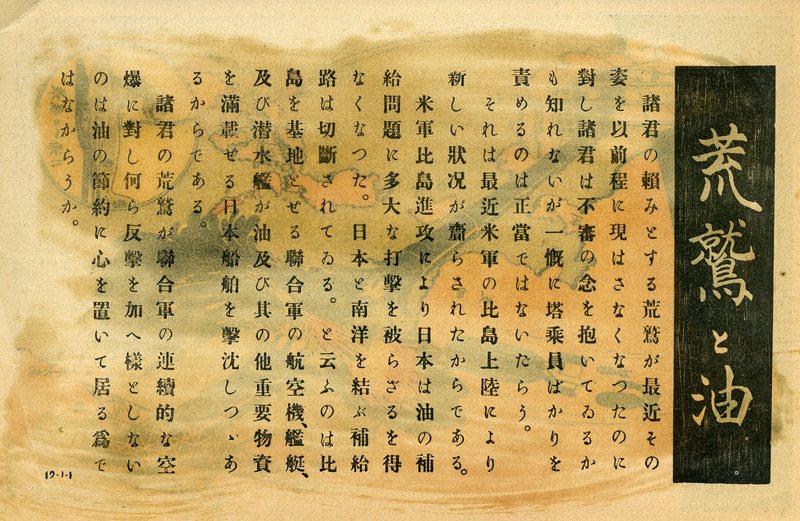 荒鷲と油
諸君の頼みとする荒鷲が最近その
姿を以前程に現はさなくなつたのに
對し諸君は不審の念を抱いてゐるか
も知れないが一慨に塔乘員ばかりを
責めるのは正當ではないだらう。
それは最近米軍の比島上陸により
新しい狀况が齎らされたからである。
米軍比島進攻により日本は油の補
給問題に多大な打擊を被らざるを得
なくなつた。日本と南洋を結ぶ補給
路は切斷されてゐる。と云ふのは比
島を基地とせる聯合軍の航空機、艦艇、
及び潜水艦が油及び其の他重要物資
を滿載せる日本船舶を擊沈しつゝあ
るからである。
諸君の荒鷲が聯合軍の連續的な空
爆に對し何ら反擊を加へ樣としない
のは油の節約に心を置いて居る爲で
はなからうか。
17-J-1